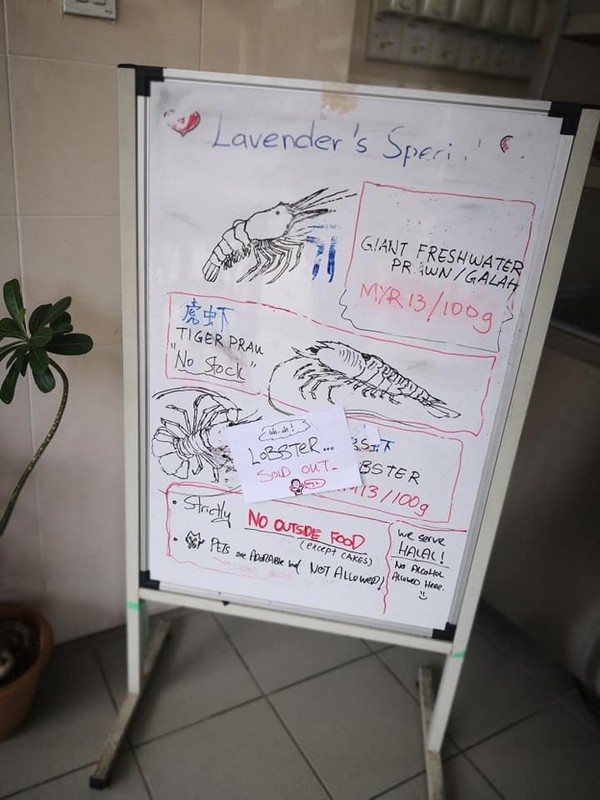 Lavender's Speci
GIANT FRESHWATER
PRAWN/GALAH
MYR 13/100g
虎虾
TIGER PRAW
"No Stock"
uh..oh!
LOBSTER...
SOLD OUT..
虾
BSTER
13/100g
• Strictly NO OUTSIDE FOOD
(EXCEPT CAKES)
• PETS are ADORABLE but NOT ALLOWED!
We serve
HALAL!
NO ALCOHOL
ALLOWED HERE.